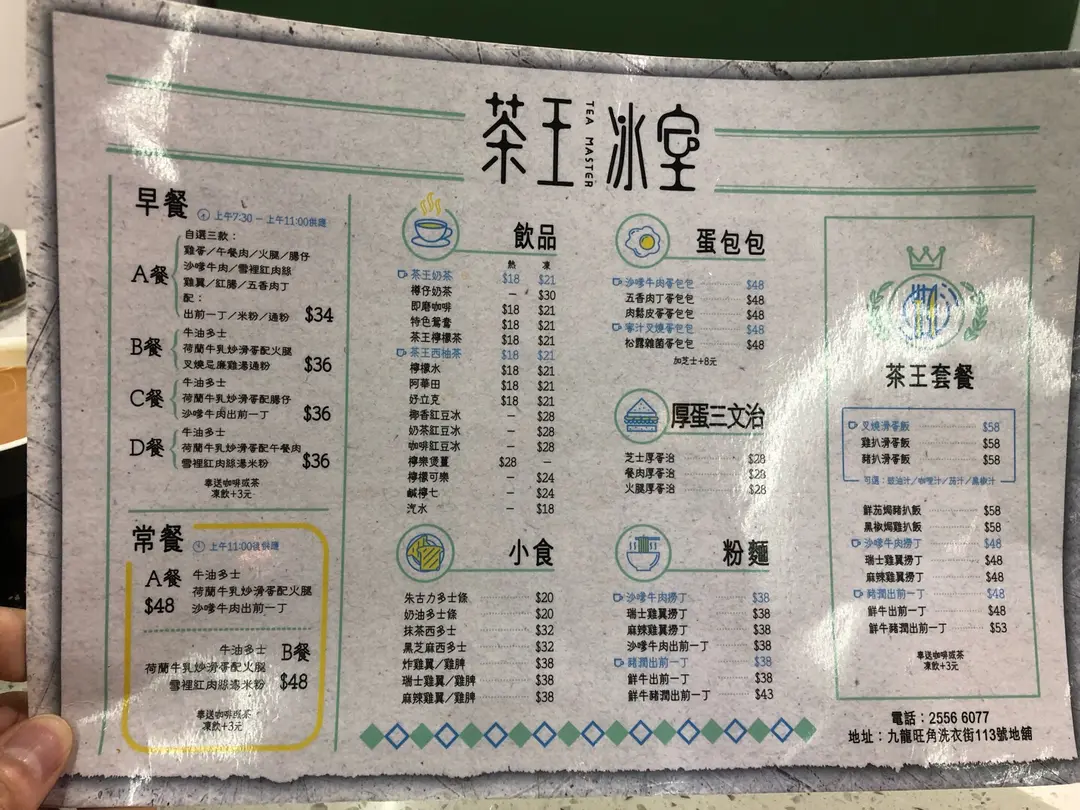 茶王冰室
TEA MASTER
早餐 上午7:30 - 上午11:00供應
A餐
自選三款：
雞蛋／午餐肉／火腿／腸仔
沙嗲牛肉／雪裡紅肉絲
雞翼／紅腸／五香肉丁
配：
出前一丁／米粉／通粉 $34
B餐
牛油多士
荷蘭牛乳炒滑蛋配火腿
叉燒忌廉雞湯通粉 $36
C餐
牛油多士
荷蘭牛乳炒滑蛋配腸仔
沙嗲牛肉出前一丁 $36
D餐
牛油多士
荷蘭牛乳炒滑蛋配午餐肉
雪裡紅肉絲湯米粉 $36
奉送咖啡或茶
凍飲+3元
常餐 上午11:00後供應
A餐 $48
牛油多士
荷蘭牛乳炒滑蛋配火腿
沙嗲牛肉出前一丁
B餐 $48
牛油多士
荷蘭牛乳炒滑蛋配火腿
雪裡紅肉絲湯米粉
奉送咖啡或茶
凍飲+3元
飲品
熱 凍
茶王奶茶 $18 $21
樽仔奶茶 – $30
即磨咖啡 $18 $21
特色鴛鴦 $18 $21
茶王檸檬茶 $18 $21
茶王西柚茶 $18 $21
檸檬水 $18 $21
阿華田 $18 $21
好立克 $18 $21
椰香紅豆冰 – $28
奶茶紅豆冰 – $28
咖啡紅豆冰 – $28
檸樂煲薑 $28 –
檸檬可樂 – $24
鹹檸七 – $24
汽水 – $18
小食
朱古力多士條 $20
奶油多士條 $20
抹茶西多士 $32
黑芝麻西多士 $32
炸雞翼／雞脾 $38
瑞士雞翼／雞脾 $38
麻辣雞翼／雞脾 $38
蛋包包
沙嗲牛肉蛋包包 $48
五香肉丁蛋包包 $48
肉鬆皮蛋蛋包包 $48
蜜汁叉燒蛋包包 $48
松露雜菌蛋包包 $48
加芝士+8元
厚蛋三文治
芝士厚蛋治 $28
餐肉厚蛋治 $28
火腿厚蛋治 $28
粉麵
沙嗲牛肉撈丁 $38
瑞士雞翼撈丁 $38
麻辣雞翼撈丁 $38
沙嗲牛肉出前一丁 $38
豬潤出前一丁 $38
鮮牛出前一丁 $38
鮮牛豬潤出前一丁 $43
茶王套餐
叉燒滑蛋飯 $58
雞扒滑蛋飯 $58
豬扒滑蛋飯 $58
可選：豉油汁／咖喱汁／茄汁／黑椒汁
鮮茄焗豬扒飯 $58
黑椒焗雞扒飯 $58
沙嗲牛肉撈丁 $48
瑞士雞翼撈丁 $48
麻辣雞翼撈丁 $48
豬潤出前一丁 $48
鮮牛出前一丁 $48
鮮牛豬潤出前一丁 $53
奉送咖啡或茶
凍飲+3元
電話：2556 6077
地址：九龍旺角洗衣街113號地舖